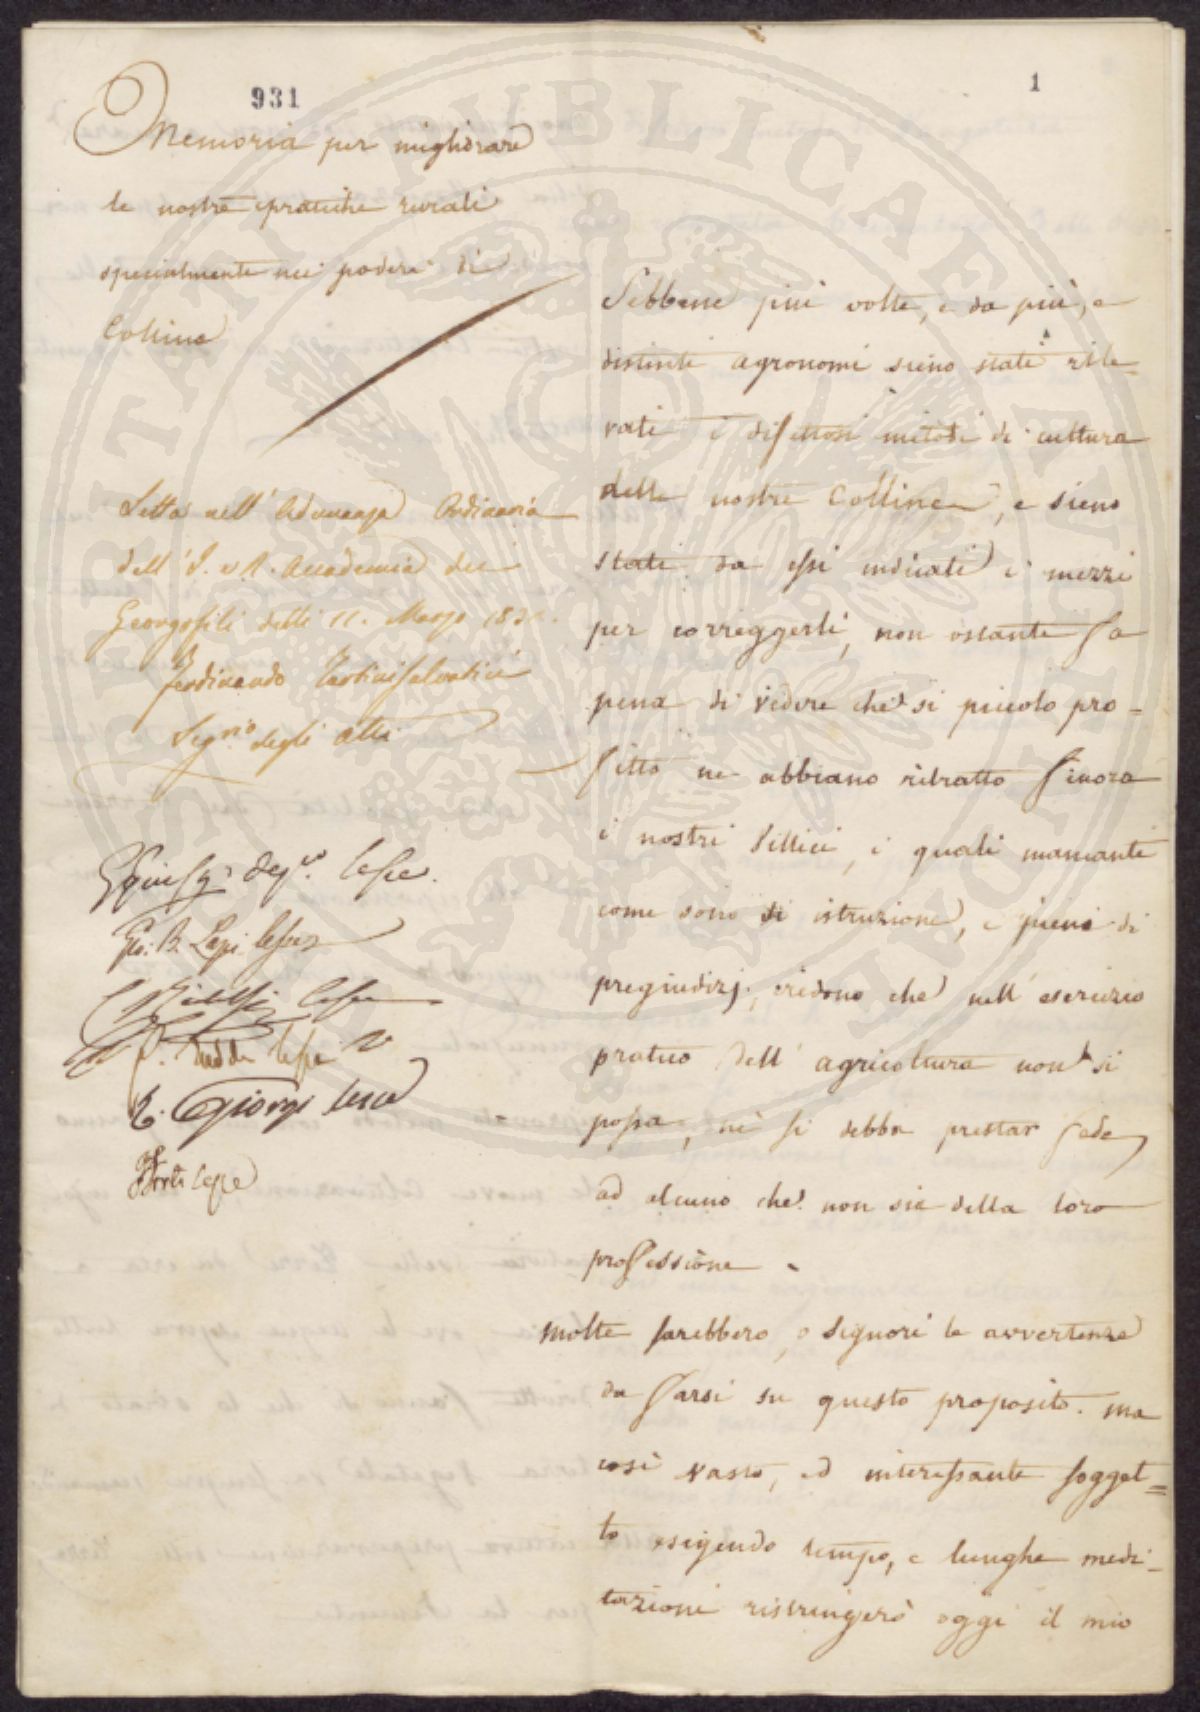 931
1
Memoria per migliorare
le nostre pratiche rurali
specialmente nei poderi di
Collina
Letta nell' Adunanza Ordinaria
dell' I. e R. Accademia dei
Georgofili delli 11. Marzo
Ferdinando Tartini Salvatici
Seg.rio degli Atti
Sebbene più volte, e da più, e
distinti agronomi sieno stati rile-
vati i difettosi metodi di cultura
delle nostre Colline, e sieno
stati da essi indicati i mezzi
per correggerli, non ostante fa
pena di vedere che sì piccolo pro-
fitto ne abbiano ritratto finora
i nostri Villici, i quali mancanti
come sono di istruzione, e pieni di
pregiudizj, credono che nell' esercizio
pratico dell' agricoltura non si
possa, nè si debba prestar fede
ad alcuno che non sia della loro
professione.
Molte sarebbero, o Signori le avvertenze
da farsi su questo proposito. ma
così vasto, ed interessante sogget=
to esigendo tempo, e lunghe medi-
tazioni ristringerò oggi il mio
Gio. B. Lapi
Giorgi